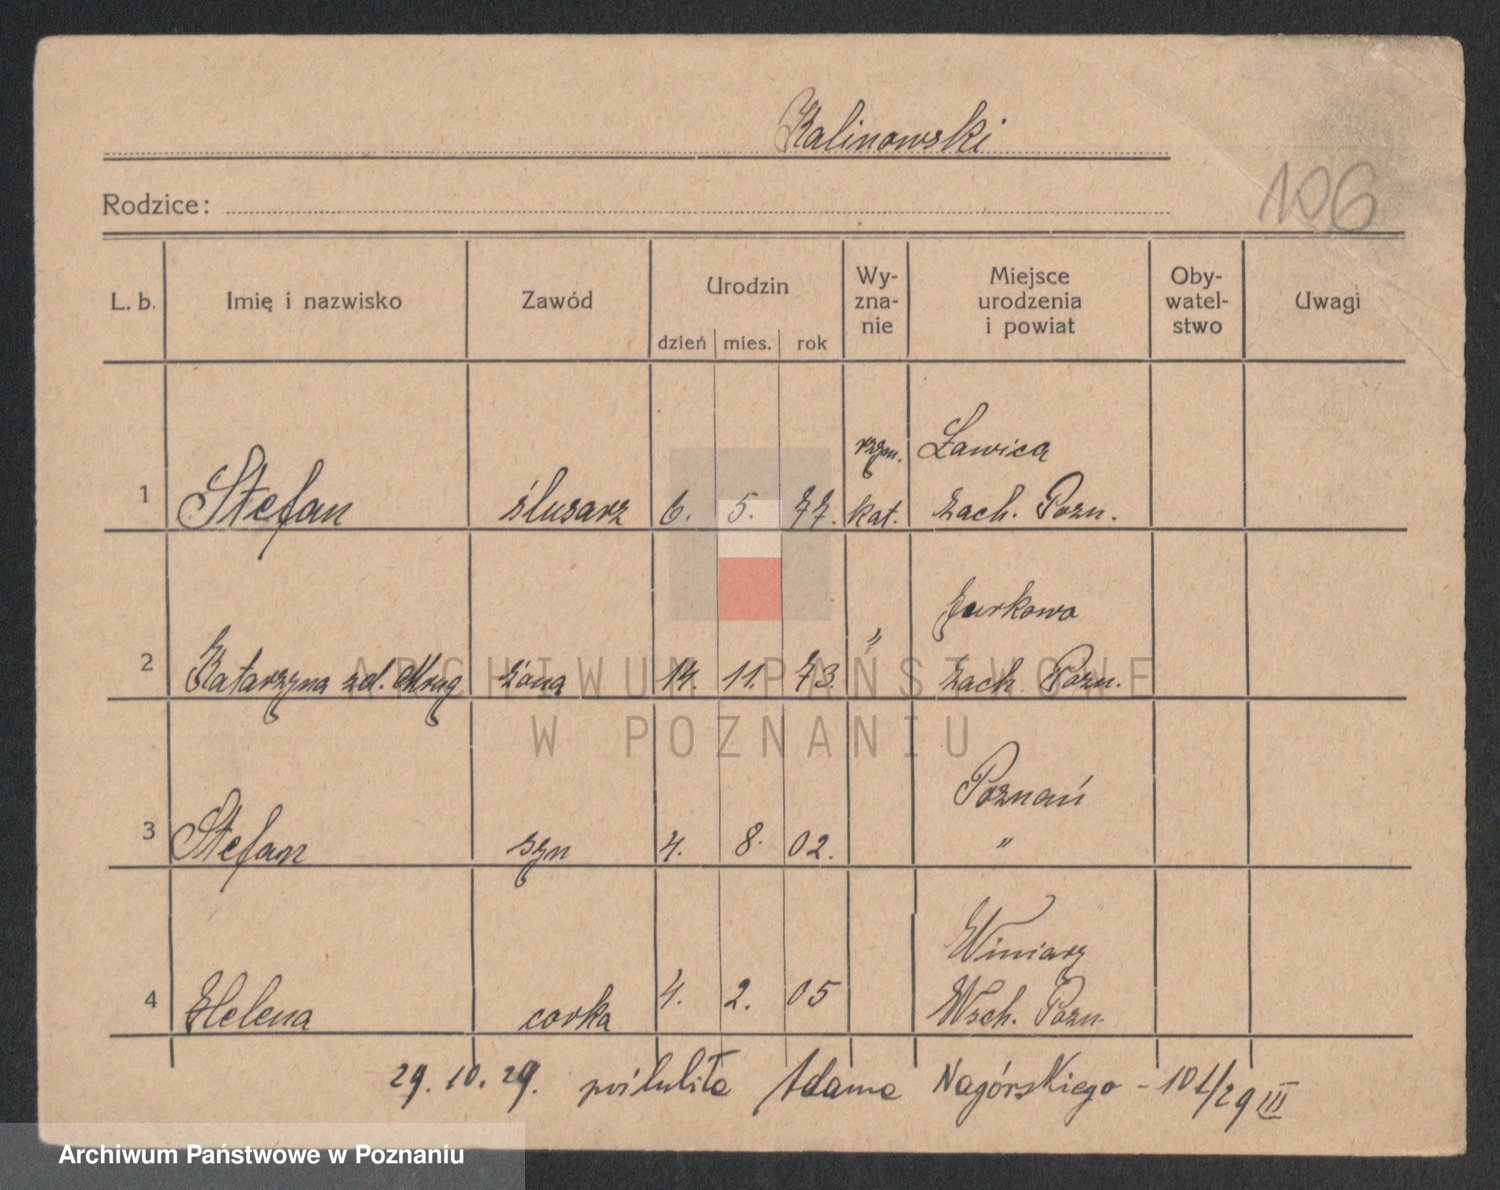 Kalinowski
106
Rodzice:
L. b. Imię i nazwisko Zawód Urodzin dzień mies. rok Wy-zna-nie Miejsce urodzenia i powiat Oby-watel-stwo Uwagi
rzym. Ławica
1 Stefan ślusarz 6. 5. 77. kat. zach. Pozn.
" Żurkowo
2 Katarzyna zd. Mróz żona 14. 11. 73. zach. Pozn.
Poznań
3 Stefan syn 4. 8. 02. "
Winiary
4 Helena corka 4. 2. 05 Wsch. Pozn.
29. 10. 29. poślubiła Adama Nagórskiego - 101/29 III
ARCHIWUM PAŃSTWOWE
W POZNANIU
Archiwum Państwowe w Poznaniu